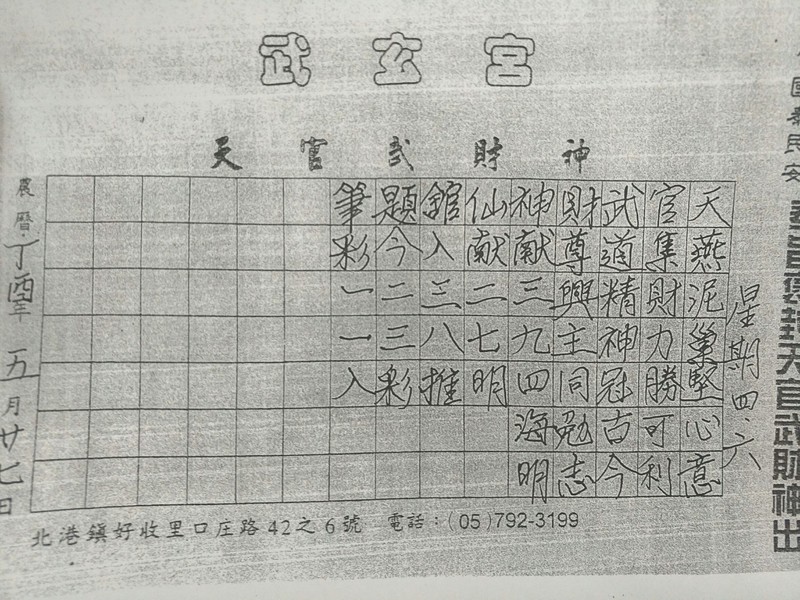 武玄宮
天官武財神
國泰民安
封天官武財神出
星期四.六
天燕泥巢堅心意
官集財力勝可利
武道精神冠古今
財尊興主同勉志
神献三九四海明
仙献二七明
館入三八推
題今二三彩
筆彩一一入
農曆丁酉年五月廿七日
北港鎮好收里口庄路42之6號 電話:(05)792-3199